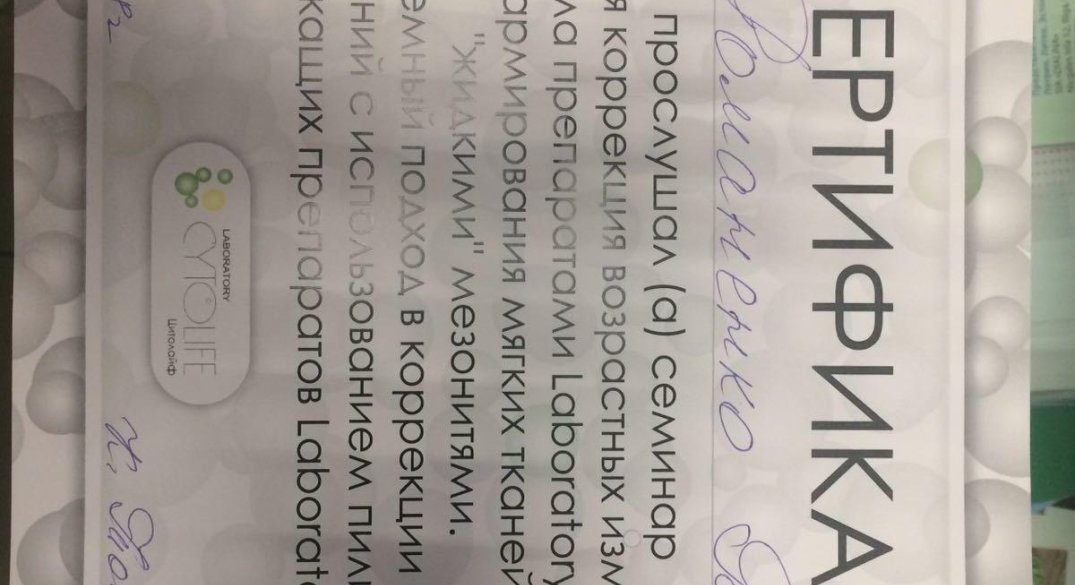 ЕРТИФИКА
Романенко
прослушал (а) семинар
я коррекция возрастных изм
ла препаратами Laboratory
армирования мягких тканей
"жидкими" мезонитями.
емный подход в коррекции
ний с использованием пили
жащих препаратов Laborato
LABORATORY
CYTOLIFE
Цитолайф